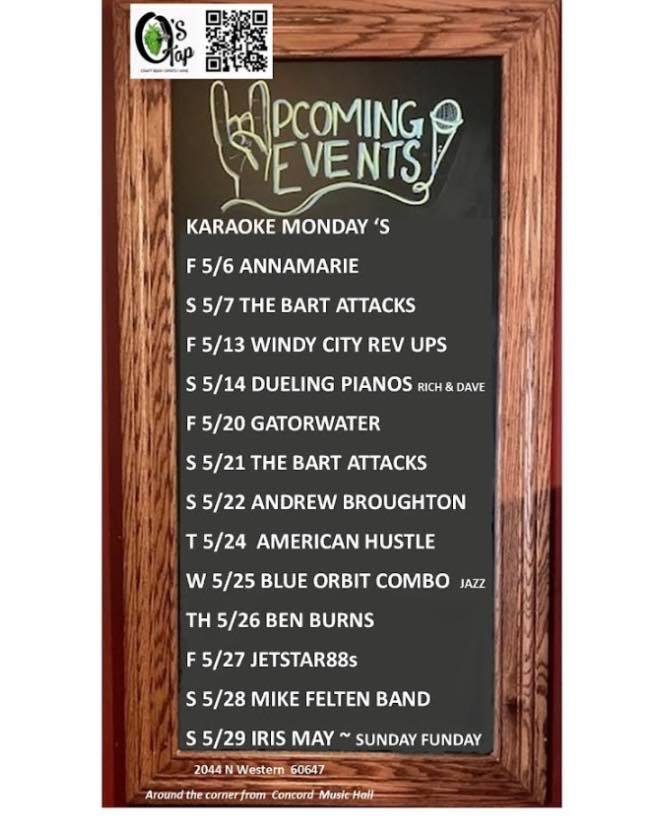 O's
Tap
UPCOMING
EVENTS
KARAOKE MONDAY ‘S
F 5/6 ANNAMARIE
S 5/7 THE BART ATTACKS
F 5/13 WINDY CITY REV UPS
S 5/14 DUELING PIANOS RICH & DAVE
F 5/20 GATORWATER
S 5/21 THE BART ATTACKS
S 5/22 ANDREW BROUGHTON
T 5/24  AMERICAN HUSTLE
W 5/25 BLUE ORBIT COMBO  JAZZ
TH 5/26 BEN BURNS
F 5/27 JETSTAR88s
S 5/28 MIKE FELTEN BAND
S 5/29 IRIS MAY ~ SUNDAY FUNDAY
2044 N Western  60647
Around the corner from  Concord  Music Hall